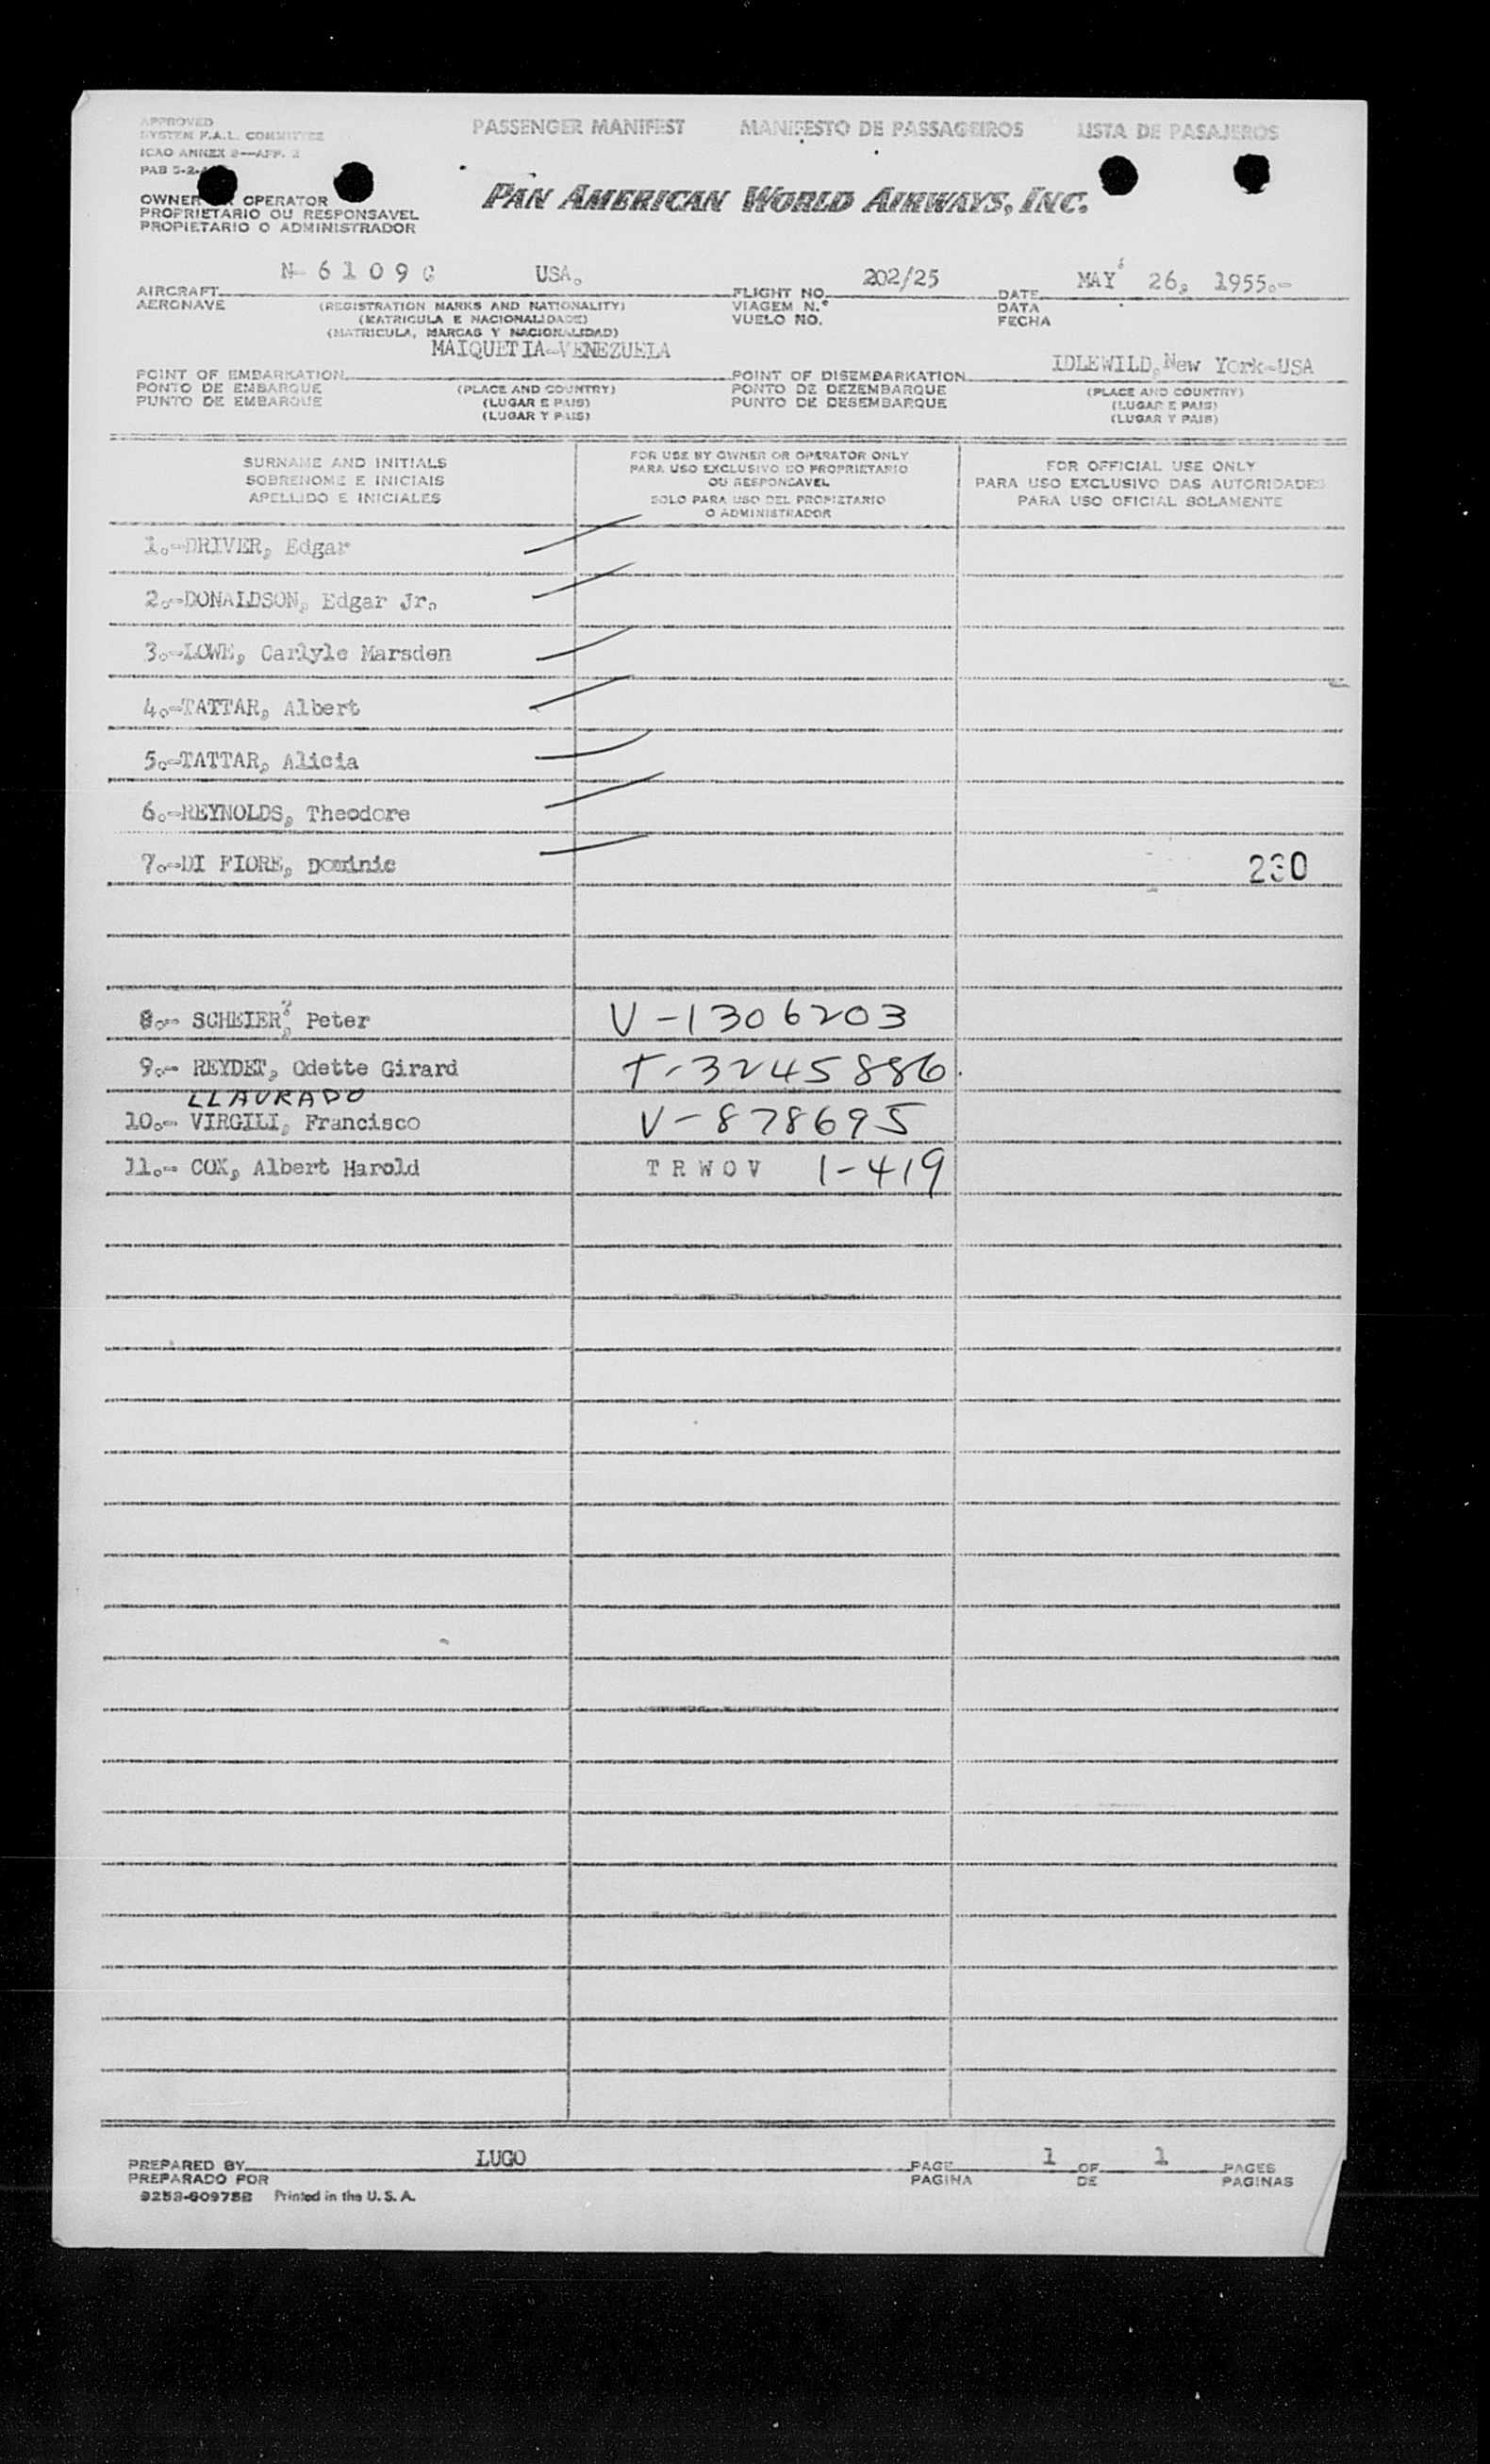 APPROVED
SYSTEM F.A.L. COMMITTEE
ICAO ANNEX 9—APP. 2
PAB 5-2-
PASSENGER MANIFEST MANIFESTO DE PASSAGEIROS LISTA DE PASAJEROS
OWNER OPERATOR
PROPRIETARIO OU RESPONSAVEL
PROPIETARIO O ADMINISTRADOR
PAN AMERICAN WORLD AIRWAYS, INC.
N- 6 1 0 9 C USA. 202/25 MAY 26, 1955.-
AIRCRAFT FLIGHT NO. DATE
AERONAVE (REGISTRATION MARKS AND NATIONALITY) VIAGEM N.º DATA
(MATRICULA E NACIONALIDADE) VUELO NO. FECHA
(MATRICULA, MARCAS Y NACIONALIDAD)
MAIQUETIA-VENEZUELA IDLEWILD, New York-USA
POINT OF EMBARKATION POINT OF DISEMBARKATION
PONTO DE EMBARQUE (PLACE AND COUNTRY) PONTO DE DEZEMBARQUE (PLACE AND COUNTRY)
PUNTO DE EMBARQUE (LUGAR E PAIS) PUNTO DE DESEMBARQUE (LUGAR E PAIS)
(LUGAR Y PAIS) (LUGAR Y PAIS)
SURNAME AND INITIALS
SOBRENOME E INICIAIS
APELLIDO E INICIALES
FOR USE BY OWNER OR OPERATOR ONLY
PARA USO EXCLUSIVO DO PROPRIETARIO
OU RESPONSAVEL
SOLO PARA USO DEL PROPIETARIO
O ADMINISTRADOR
FOR OFFICIAL USE ONLY
PARA USO EXCLUSIVO DAS AUTORIDADES
PARA USO OFICIAL SOLAMENTE
1.-DRIVER, Edgar
2.-DONALDSON, Edgar Jr.
3.-LOWE, Carlyle Marsden
4.-TATTAR, Albert
5.-TATTAR, Alicia
6.-REYNOLDS, Theodore
7.-DI FIORE, Dominic 230
8.- SCHEIER, Peter V-1306203
9.- REYDET, Odette Girard T-3245886
LLAURADO
10.- VIRGILI, Francisco V-878695
11.- COX, Albert Harold TRWOV 1-419
PREPARED BY LUGO PAGE 1 OF 1 PAGES
PREPARADO POR PAGINA DE PAGINAS
9253-60975B Printed in the U.S.A.